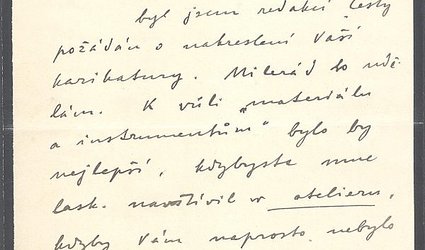 byl jsem redakcí Cesty
požádán o nakreslení Vaší
karikatury. Milerád to udě-
lám. K vůli "materiálu
a instrumentům" bylo by
nejlepší, kdybyste mne
lask. navštívil v atelieru,
kdyby Vám naprosto nebylo